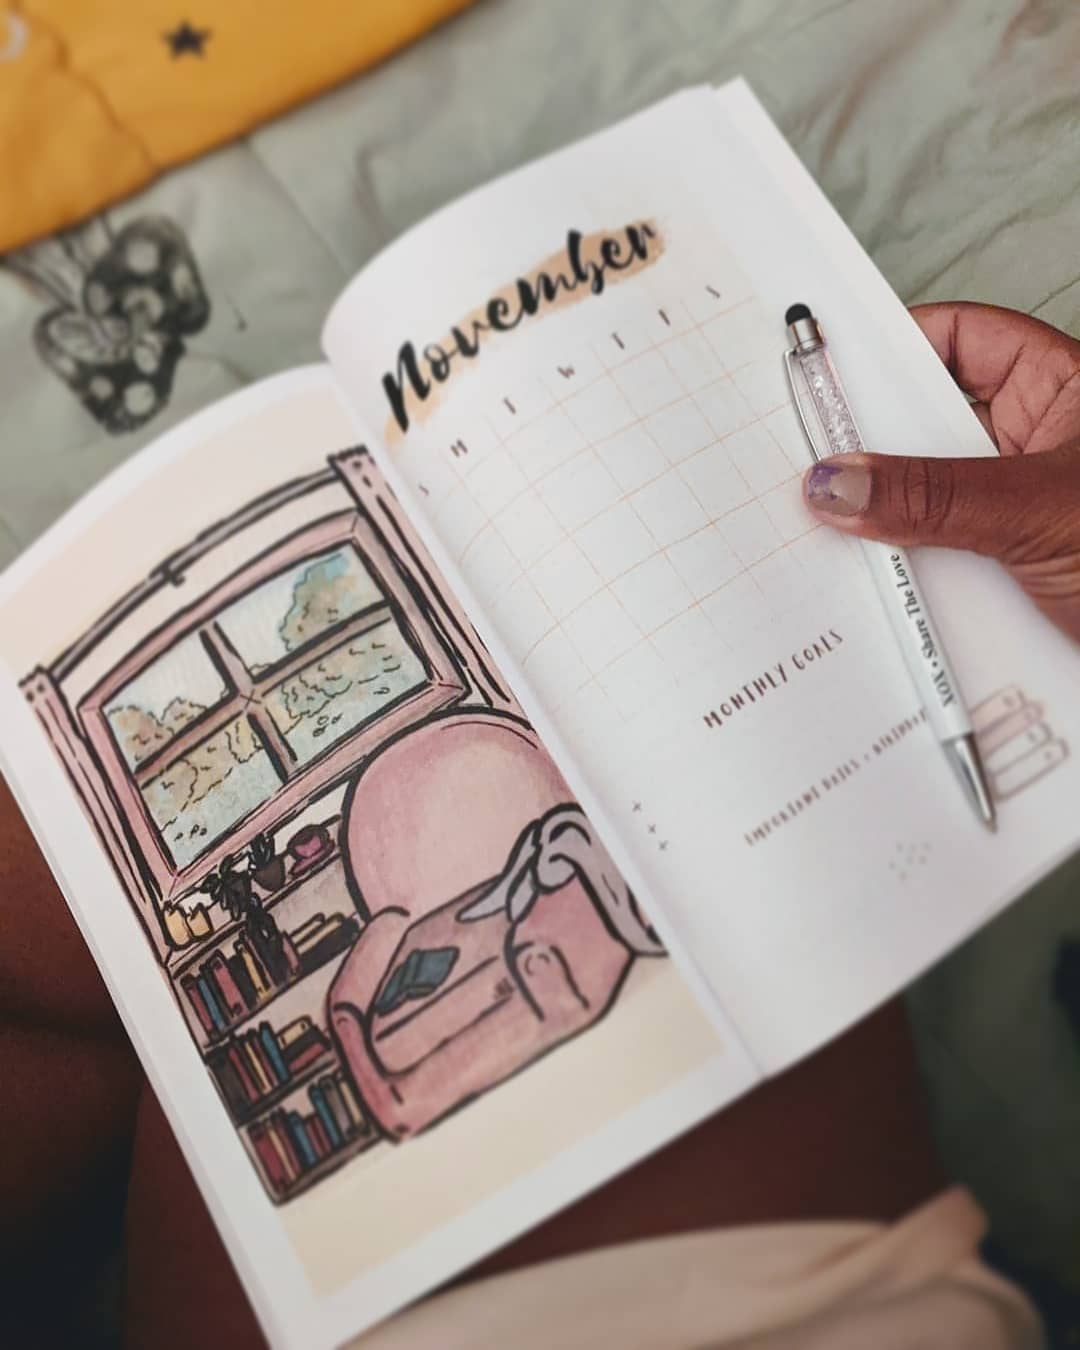 November
S M T W T F S
MONTHLY GOALS
IMPORTANT DATES + BIRTHDAYS
XOX • Share The Love